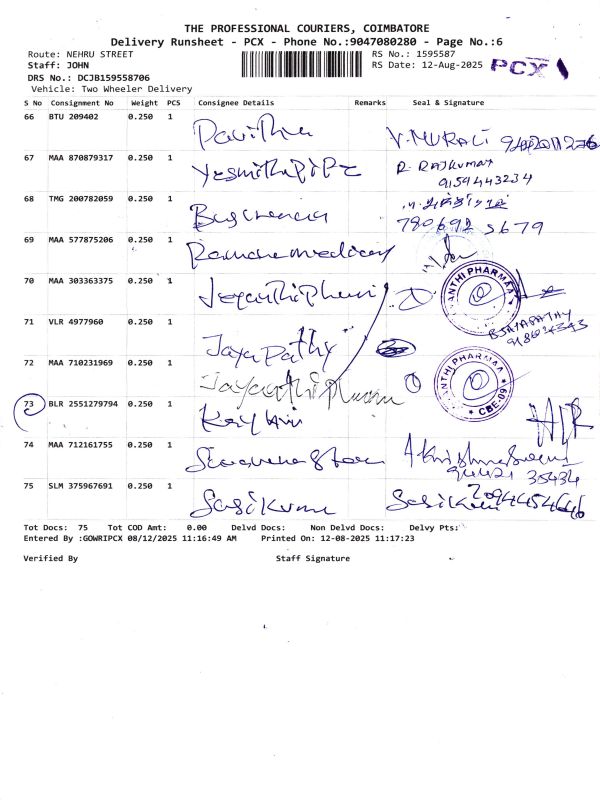 THE PROFESSIONAL COURIERS, COIMBATORE
Delivery Runsheet - PCX - Phone No.:9047080280 - Page No.:6
Route: NEHRU STREET
RS No.: 1595587
Staff: JOHN
RS Date: 12-Aug-2025
PCX
DRS No.: DCJB159558706
Vehicle: Two Wheeler Delivery
S No Consignment No Weight PCS Consignee Details Remarks Seal & Signature
66 BTU 209402 0.250 1 Pavithra V. MURALI
67 MAA 870879317 0.250 1 R. RAJKUMAR
9154443234
68 TMG 200782059 0.250 1
780692 5679
69 MAA 577875206 0.250 1
70 MAA 303363375 0.250 1 ANTHI PHARMAA
71 VLR 4977960 0.250 1 Jayapathy B. JAYAPATHY
72 MAA 710231969 0.250 1 Jayanthi pharm ANTHI PHARMAA
CBE-09
73 BLR 2551279794 0.250 1
74 MAA 712161755 0.250 1
94421 35434
75 SLM 375967691 0.250 1 Sasikumar Sasikumar
Tot Docs: 75 Tot COD Amt: 0.00 Delvd Docs: Non Delvd Docs: Delvy Pts:
Entered By :GOWRIPCX 08/12/2025 11:16:49 AM Printed On: 12-08-2025 11:17:23
Verified By Staff Signature